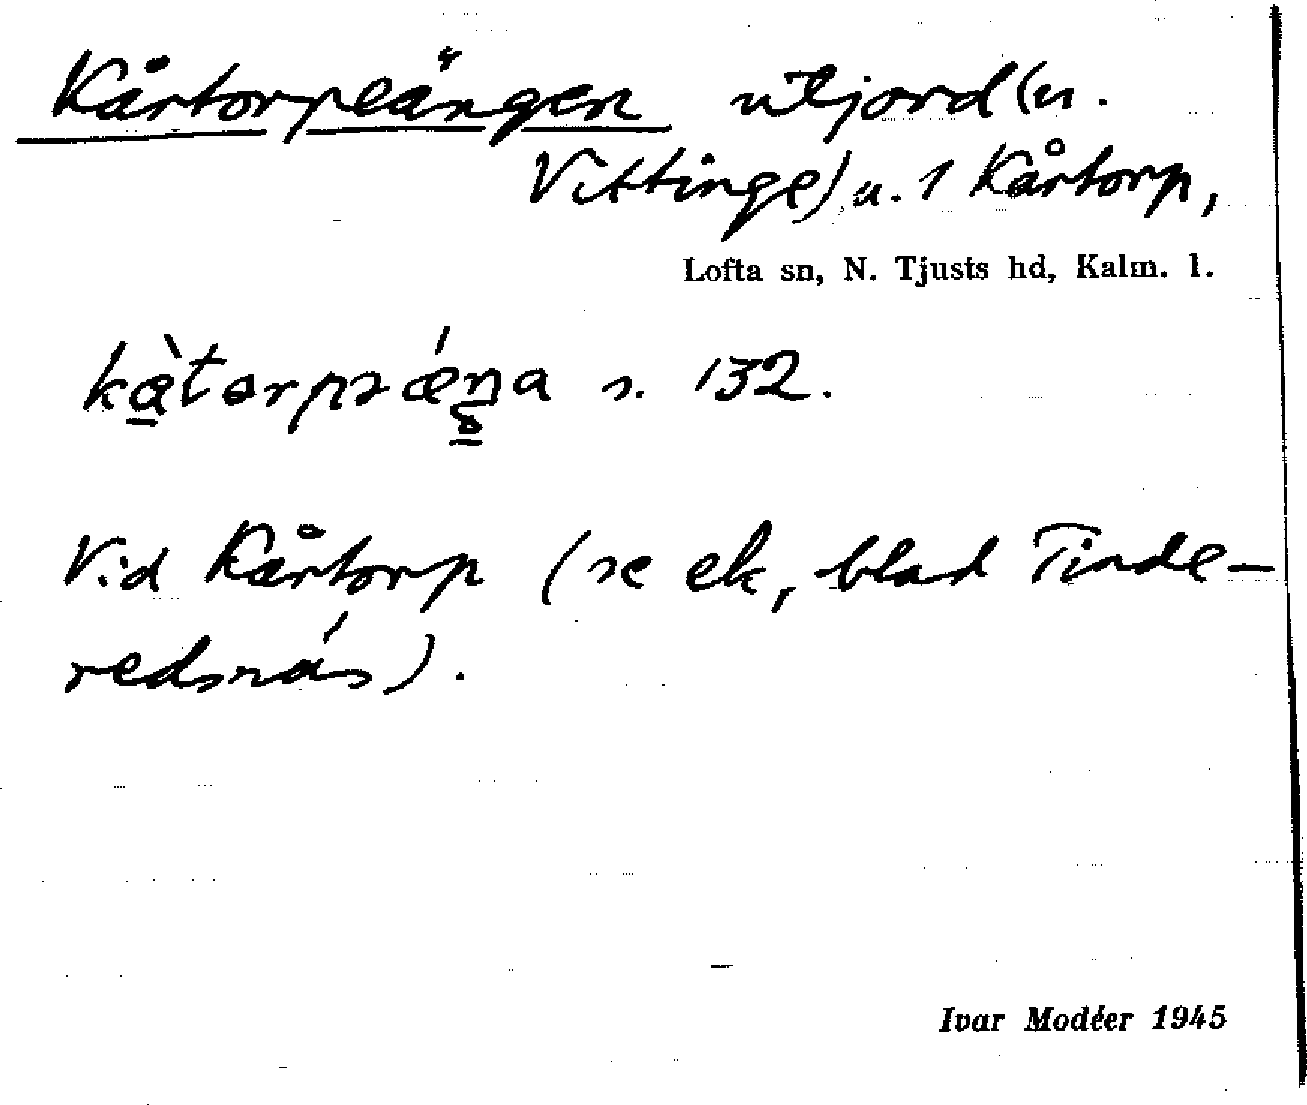 Kårtorpeängen utjord (u.
Vittinge) u. 1 Kårtorp,
Lofta sn, N. Tjusts hd, Kalm. l.
s. 132.
Vid Kårtorp (se ek, blad Tinde-
redsnäs).
Ivar Modéer 1945